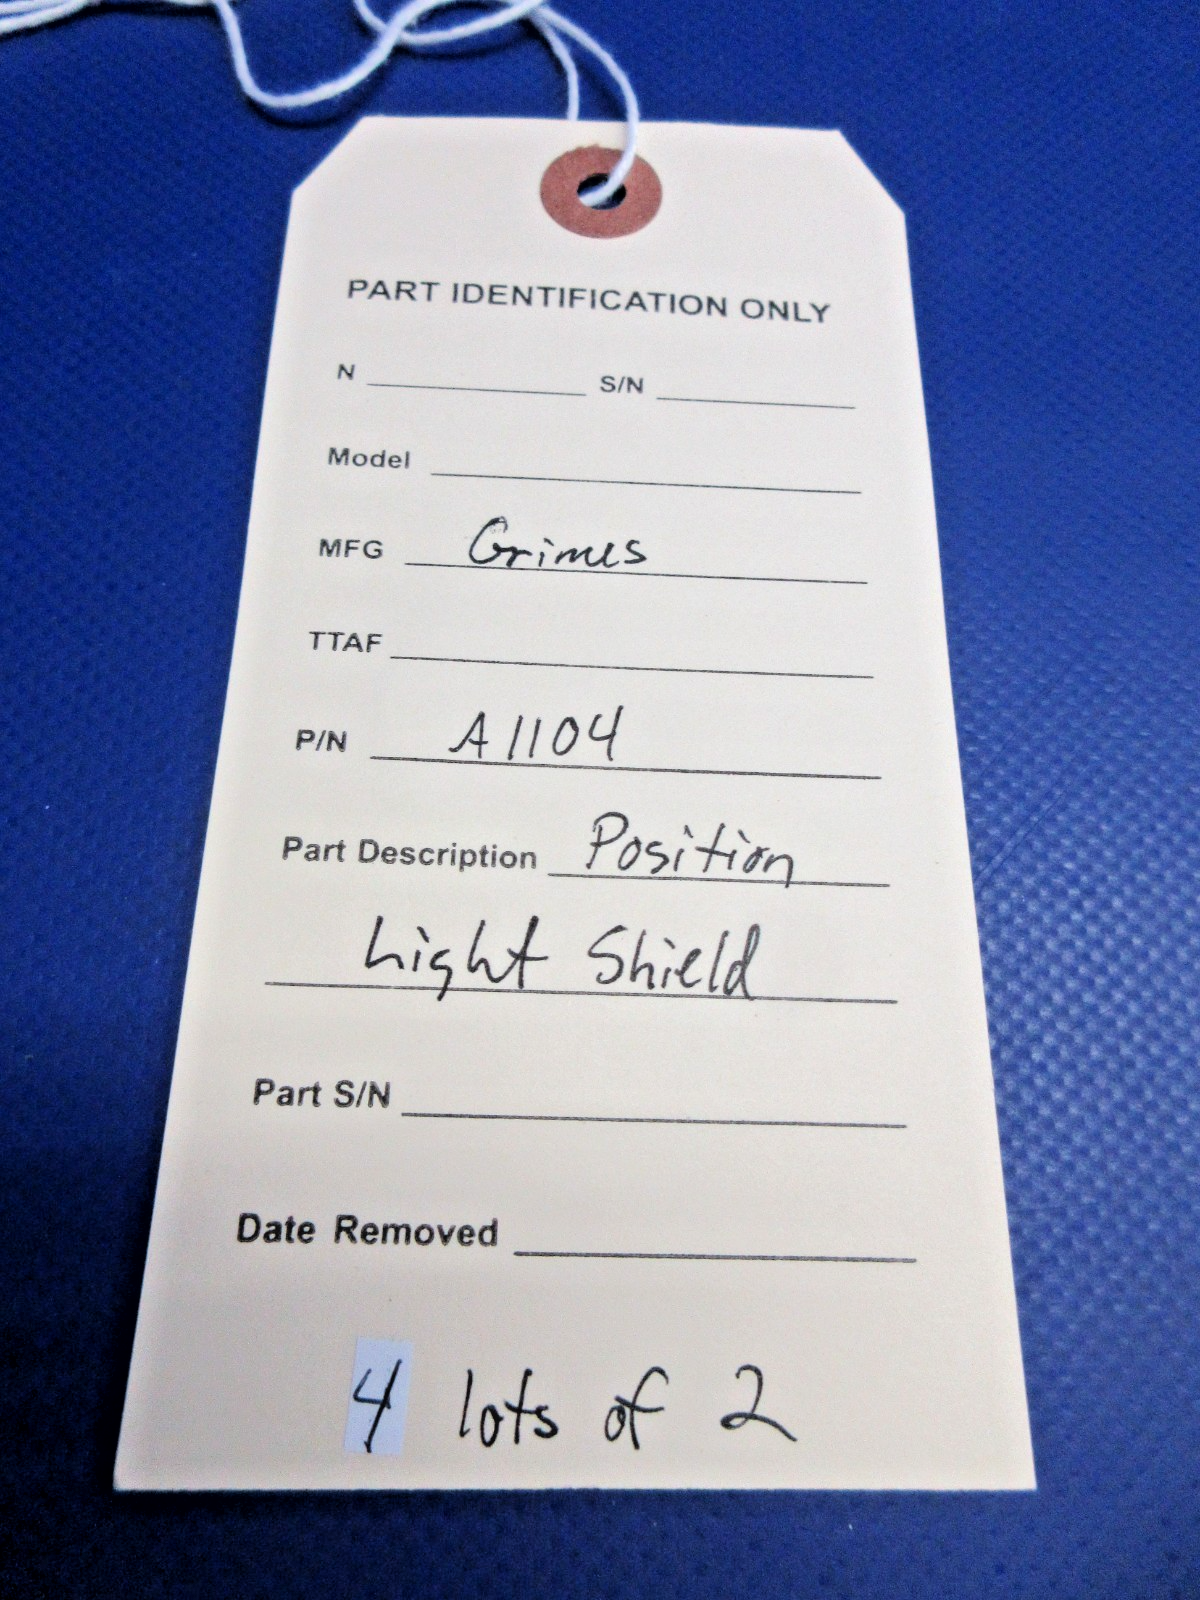 PART IDENTIFICATION ONLY
N S/N
Model
MFG Grimes
TTAF
P/N A1104
Part Description Position
Light Shield
Part S/N
Date Removed
4 lots of 2